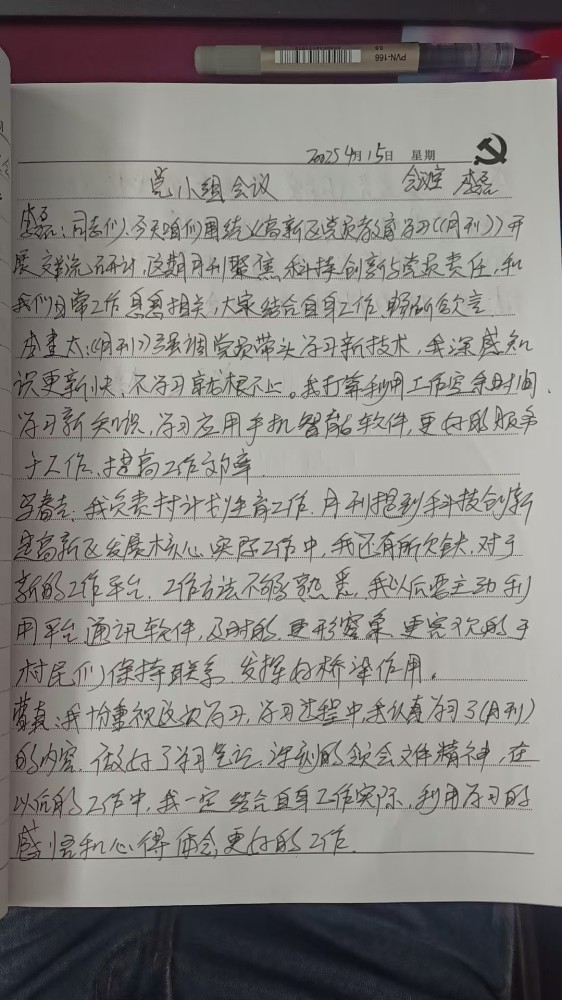 PVN-166
0.5
2025年4月15日 星期
党小组会议 会议室 李磊
李磊:同志们、今天咱们围绕《高新区党员教育学习《月刊》》开
展交流研讨,这期月刊聚焦科技创新与党员责任,和
我们日常工作息息相关,大家结合自身工作、畅所欲言.
《月刊》强调党员带头学习新技术,我深感知
识更新快、不学习就跟不上。我打算利用工作空余时间、
学习新知识,学习应用手机智能软件,更好的服务
于工作、提高工作效率.
我负责村计划生育工作.月刊提到科技创新
是高新区发展核心.实际工作中,我还有所欠缺.对于
新的工作平台.工作方法不够熟悉,我以后要主动利
用平台通讯软件,及时的、更形象、更客观的于
村民们保持联系.发挥好桥梁作用。
我十分重视这次学习,学习过程中,我认真学习了《月刊》
的内容.做好了学习笔记.深刻的领会文件精神,在
以后的工作中,我一定结合自身工作实际,利用学习的
感悟和心得体会,更好的工作.